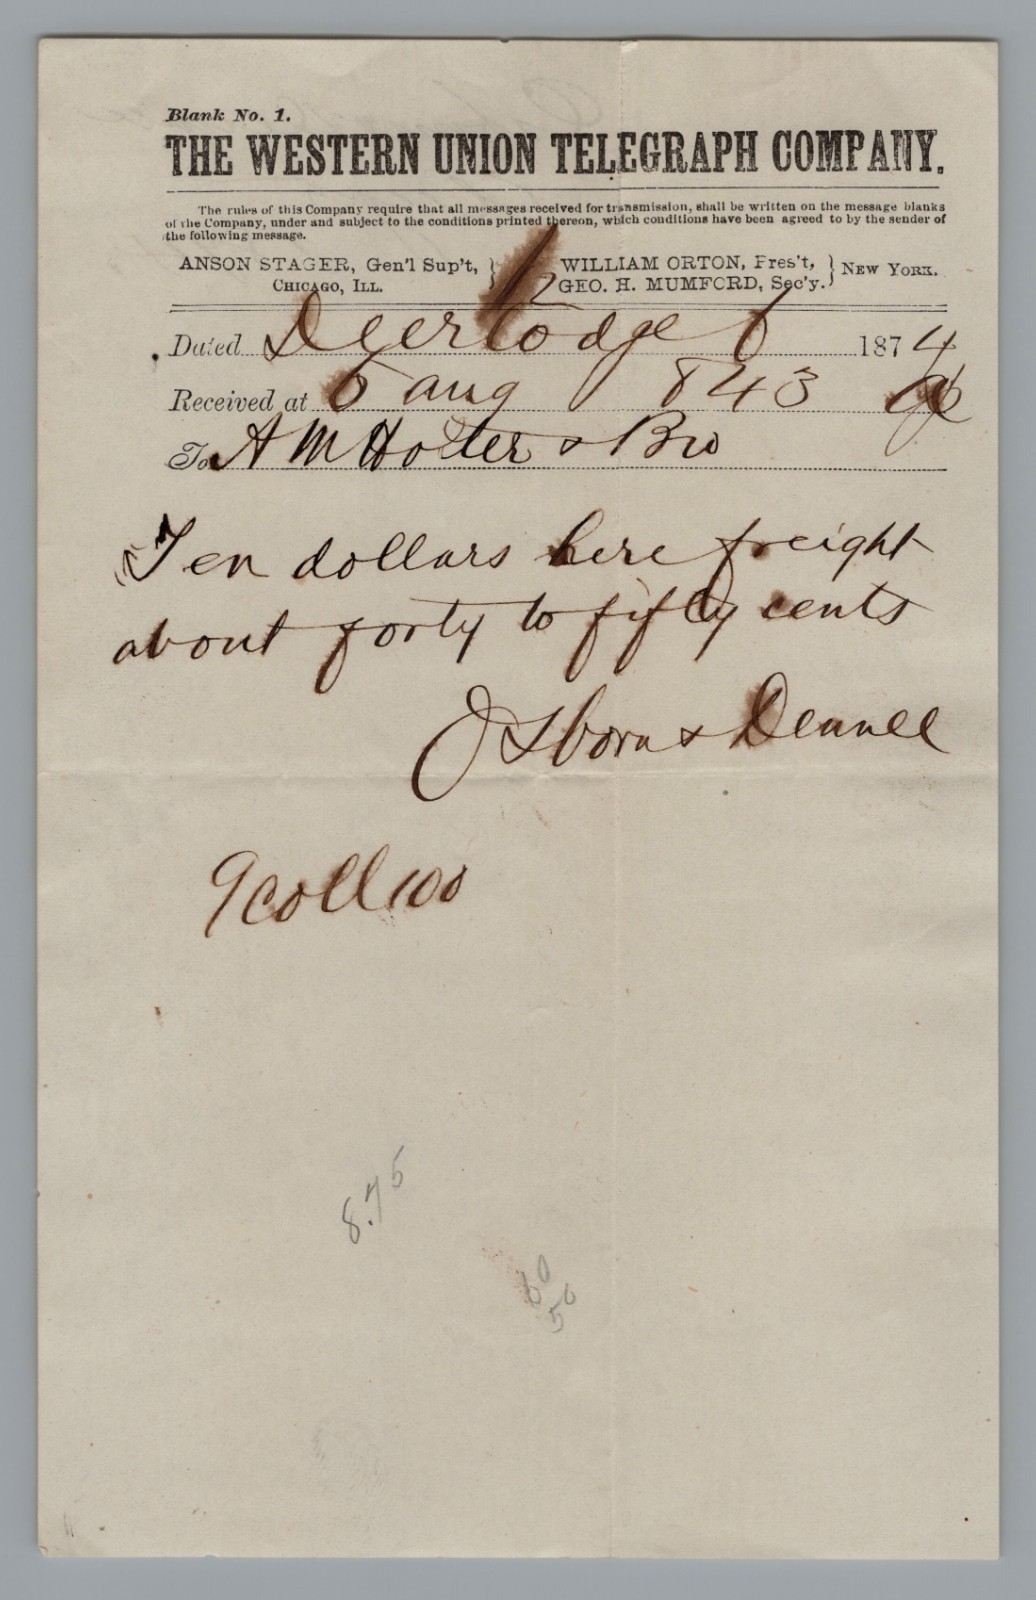 Blank No. 1.
THE WESTERN UNION TELEGRAPH COMPANY.
The rules of this Company require that all messages received for transmission, shall be written on the message blanks
of the Company, under and subject to the conditions printed thereon, which conditions have been agreed to by the sender of
the following message.
ANSON STAGER, Gen'l Sup't, } { WILLIAM ORTON, Pres't, } NEW YORK.
CHICAGO, ILL. GEO. H. MUMFORD, Sec'y.
Dated Deerlodge 5 1874
Received at 5 aug 843
To A M Holter & Bro
Ten dollars here freight
about forty to fifty cents
Osborn & Dennee
9 coll 100
8.75
60
50